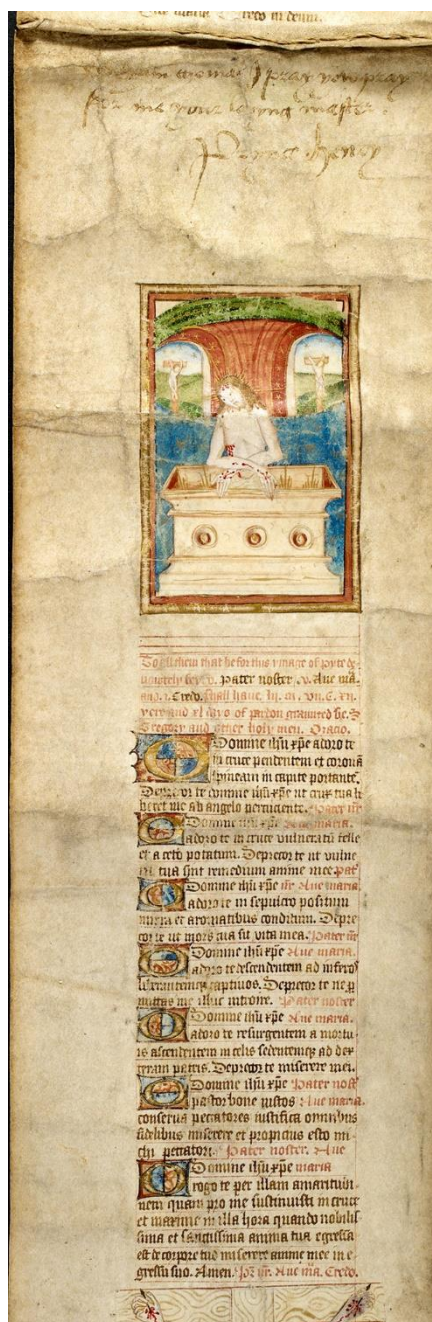 Aue maria Credo in deum.
Wylliam thomas I pray yow pray
for me your lovyng master
Prynce Henry
To all them that be for this ymage of pyte de-
uoutely sey .v. Pater noster .v. Aue ma.
and .i. Credo. shall haue. lii. m. vii. C. xii.
yere and xl days of pardon graunted be. S
Gregory and other holy men. Oracio.
Domine ihu xpe adoro te
in cruce pendentem et coronā
spineam in capite portante.
Deprecor te domine ihu xpe ut crux tua li
beret me ab angelo percuciente. Pater nr
Domine ihu xpe Aue maria.
adoro te in cruce vulneratū felle
et aceto potatum. Deprecor te ut vulne
ra tua sint remedium anime mee Pat
Domine ihu xpe nr Aue maria.
adoro te in sepulcro positum
mirra et aromatibus conditum. Depre
cor te ut mors tua sit vita mea. Pater nr
Domine ihu xpe Aue maria.
adoro te descendentem ad inferos
liberantemque captiuos. Deprecor te ne p
mittas me illuc introire. Pater noster
Domine ihu xpe Aue maria.
adoro te resurgentem a mortu
is ascendentem in celis sedentemque ad dex
teram patris. Deprecor te miserere mei.
Domine ihu xpe Pater nost
pastor bone iustos Aue maria.
conserua peccatores iustifica omnibus
fidelibus miserere et propicius esto mi
chi peccatori. Pater noster. Aue
Domine ihu xpe maria
rogo te per illam amaritudi
nem quam pro me sustinuisti in cruce
et maxime in illa hora quando nobilis
sima et sanctissima anima tua egressa
est de corpore tuo miserere anime mee in e
gressu suo. Amen. Pr nr. Aue ma. Credo.